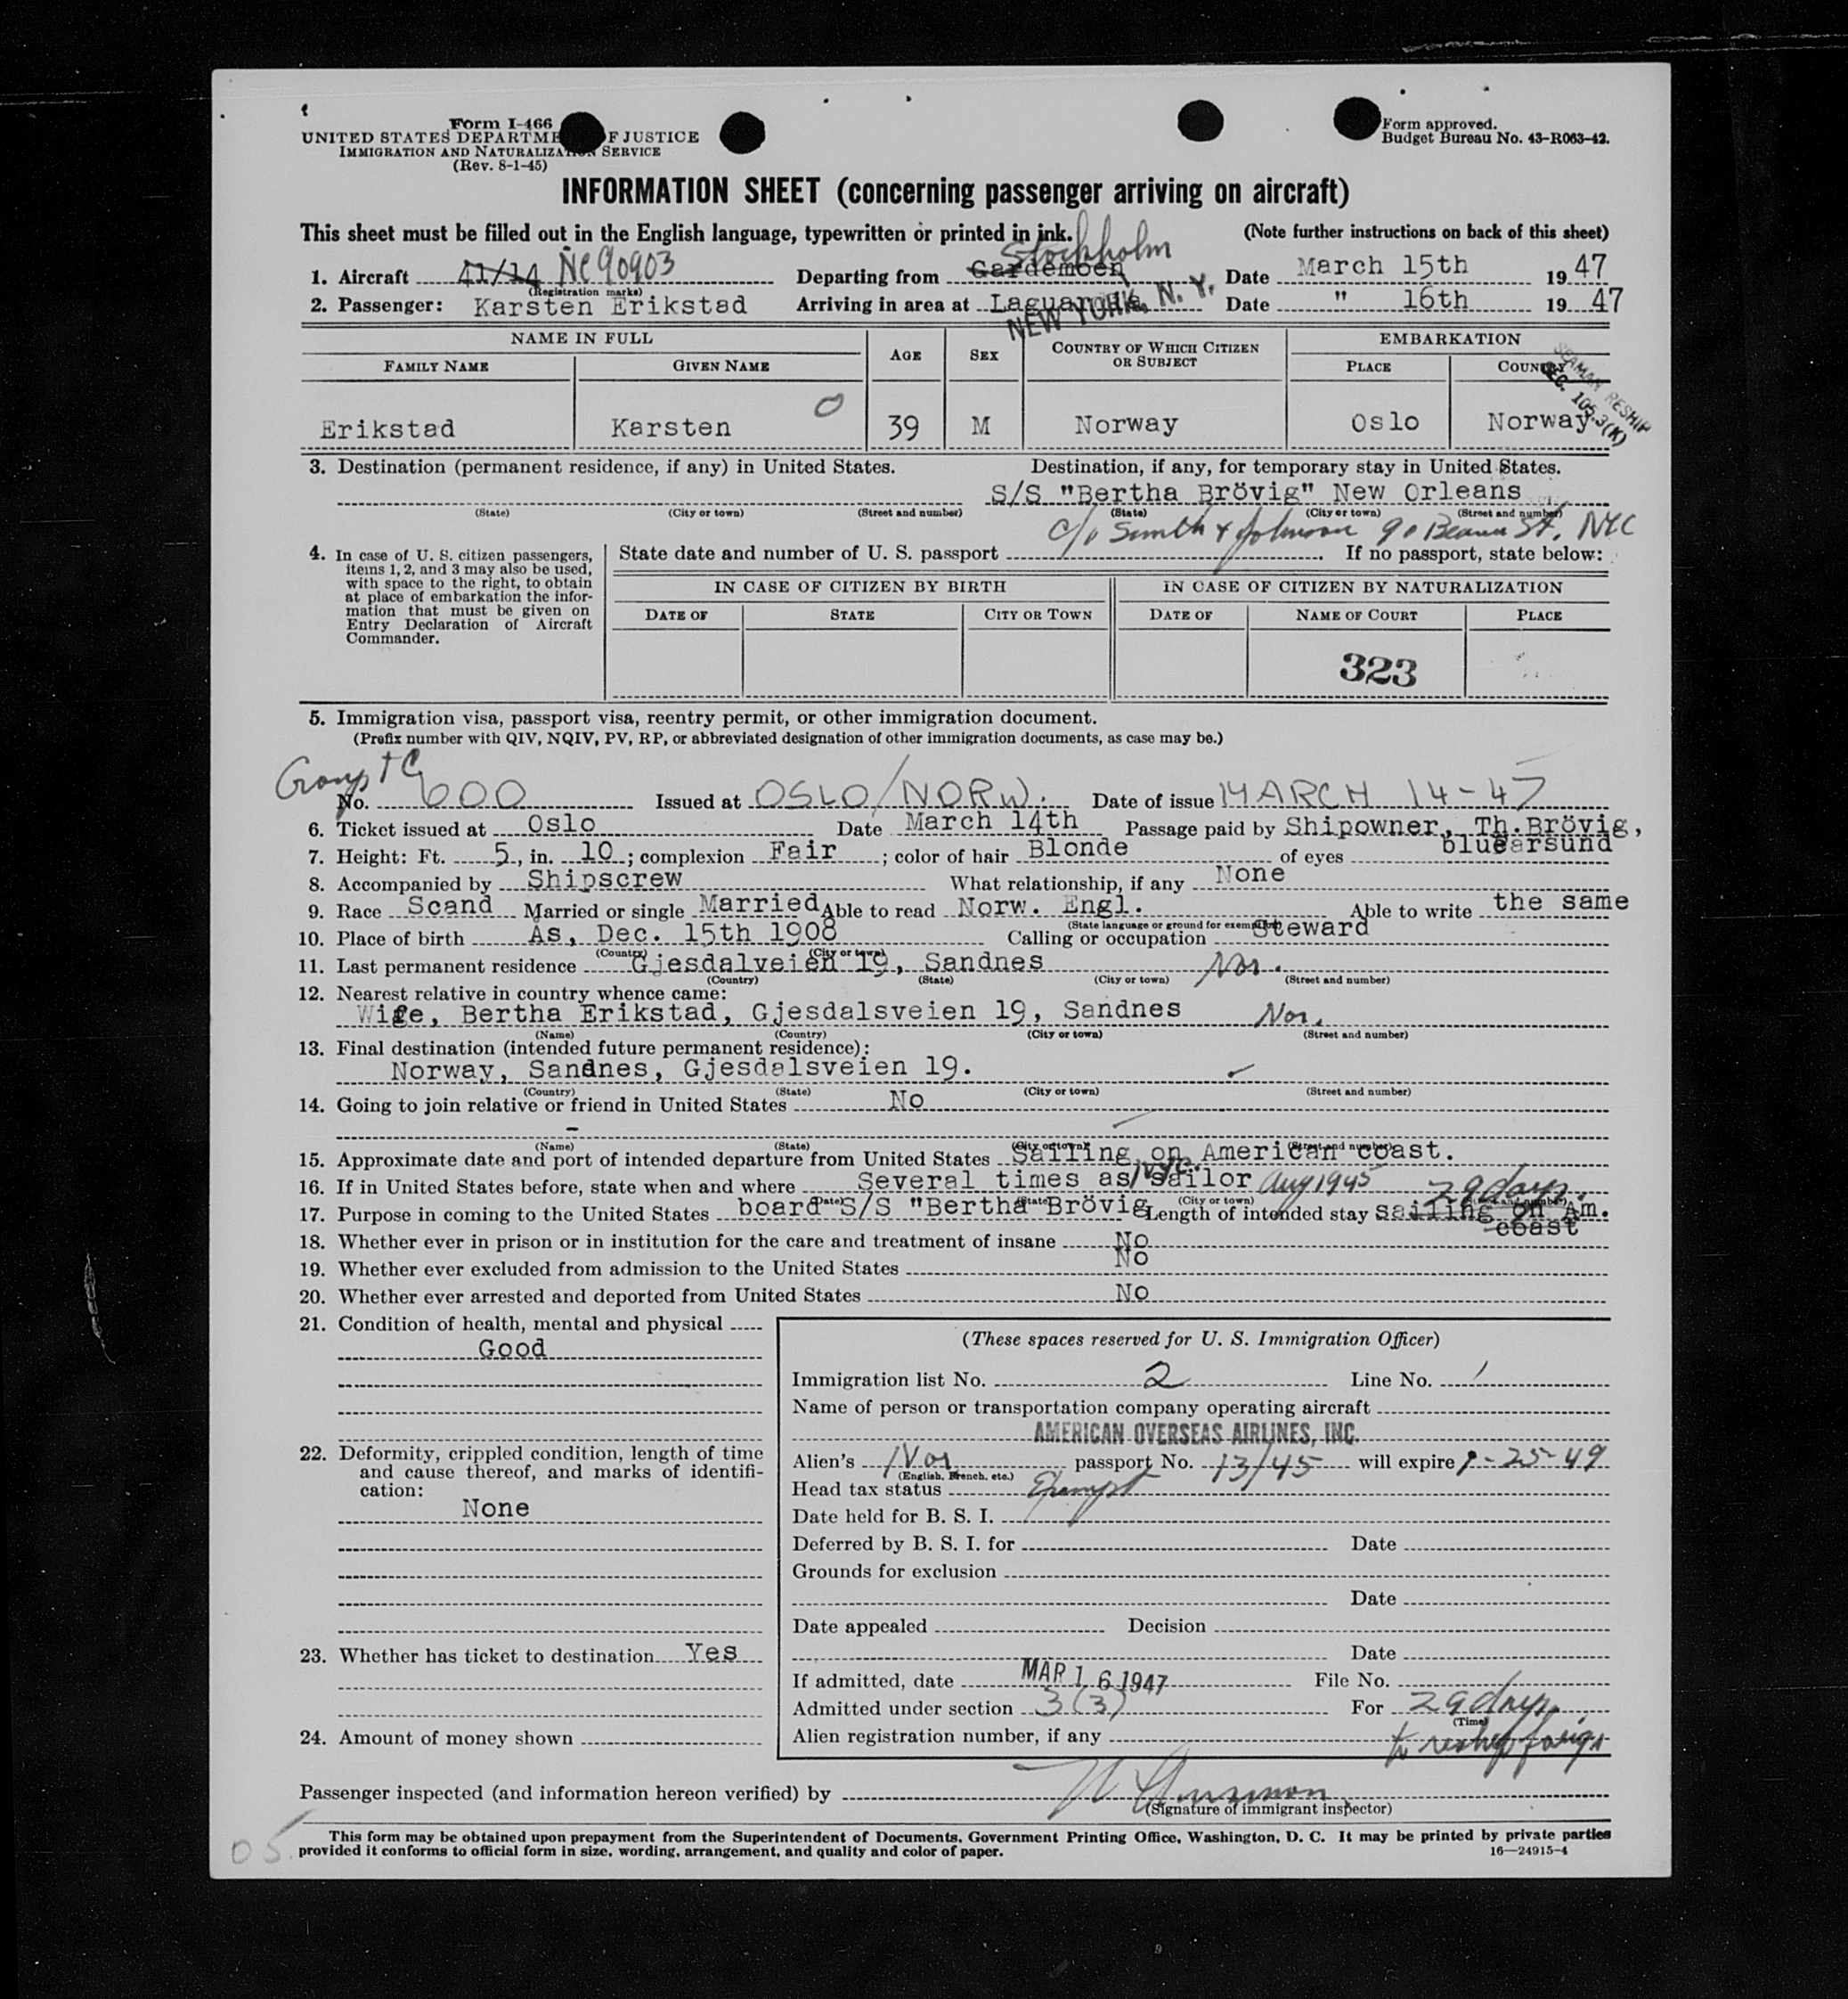 Form I-466
UNITED STATES DEPARTME F JUSTICE
IMMIGRATION AND NATURALIZATION SERVICE
(Rev. 8-1-45)
Form approved.
Budget Bureau No. 43-R063-42.
INFORMATION SHEET (concerning passenger arriving on aircraft)
This sheet must be filled out in the English language, typewritten or printed in ink. (Note further instructions on back of this sheet)
Stockholm
1. Aircraft 41/14 NC 90903 Departing from Gardemoen Date March 15th 1947
(Registration marks)
2. Passenger: Karsten Erikstad Arriving in area at Laguardia Date " 16th 1947
NEW YORK, N. Y.
NAME IN FULL AGE SEX COUNTRY OF WHICH CITIZEN OR SUBJECT EMBARKATION
FAMILY NAME GIVEN NAME PLACE COUNTRY
SEAMAN RESHIP
SEC. 105.3(K)
Erikstad Karsten O 39 M Norway Oslo Norway
3. Destination (permanent residence, if any) in United States. Destination, if any, for temporary stay in United States.
S/S "Bertha Brövig" New Orleans
(State) (City or town) (Street and number) (State) (City or town) (Street and number)
c/o Smith & Johnson 90 Beaver St. NYC
4. In case of U. S. citizen passengers, items 1, 2, and 3 may also be used, with space to the right, to obtain at place of embarkation the information that must be given on Entry Declaration of Aircraft Commander.
State date and number of U. S. passport If no passport, state below:
IN CASE OF CITIZEN BY BIRTH IN CASE OF CITIZEN BY NATURALIZATION
DATE OF STATE CITY OR TOWN DATE OF NAME OF COURT PLACE
323
5. Immigration visa, passport visa, reentry permit, or other immigration document.
(Prefix number with QIV, NQIV, PV, RP, or abbreviated designation of other immigration documents, as case may be.)
No. 600 Issued at OSLO/NORW. Date of issue MARCH 14-47
6. Ticket issued at Oslo Date March 14th Passage paid by Shipowner, Th. Brövig,
7. Height: Ft. 5, in. 10; complexion Fair; color of hair Blonde of eyes blue
8. Accompanied by Shipscrew What relationship, if any None
9. Race Scand Married or single Married Able to read Norw. Engl. Able to write the same
(State language or ground for exemption)
10. Place of birth Ås, Dec. 15th 1908 Calling or occupation Steward
(Country) (City or town)
11. Last permanent residence Gjesdalveien 19, Sandnes Nor.
(Country) (State) (City or town) (Street and number)
12. Nearest relative in country whence came:
Wife, Bertha Erikstad, Gjesdalsveien 19, Sandnes Nor.
(Name) (Country) (City or town) (Street and number)
13. Final destination (intended future permanent residence):
Norway, Sandnes, Gjesdalsveien 19.
(Country) (State) (City or town) (Street and number)
14. Going to join relative or friend in United States No
(Name) (State) (City or town) (Street and number)
15. Approximate date and port of intended departure from United States Sailing on American coast.
16. If in United States before, state when and where Several times as sailor NYC. Aug 1945 29 days.
(Date) (State) (City or town) (Street and number)
17. Purpose in coming to the United States board S/S "Bertha Brövig Length of intended stay sailing on Am. coast
18. Whether ever in prison or in institution for the care and treatment of insane No
19. Whether ever excluded from admission to the United States No
20. Whether ever arrested and deported from United States No
21. Condition of health, mental and physical
Good
(These spaces reserved for U. S. Immigration Officer)
Immigration list No. 2 Line No. 1
Name of person or transportation company operating aircraft
AMERICAN OVERSEAS AIRLINES, INC.
22. Deformity, crippled condition, length of time and cause thereof, and marks of identification:
None
Alien's Nor passport No. 13/45 will expire 9-25-49
(English, French, etc.)
Head tax status Exempt
Date held for B. S. I.
Deferred by B. S. I. for Date
Grounds for exclusion
Date
Date appealed Decision
23. Whether has ticket to destination Yes
Date
If admitted, date MAR 16 1947 File No.
Admitted under section 3(3) For 29 days
(Time)
24. Amount of money shown
Alien registration number, if any to reship foreign
Passenger inspected (and information hereon verified) by
(Signature of immigrant inspector)
This form may be obtained upon prepayment from the Superintendent of Documents, Government Printing Office, Washington, D. C. It may be printed by private parties
provided it conforms to official form in size, wording, arrangement, and quality and color of paper. 16—24915-4
05